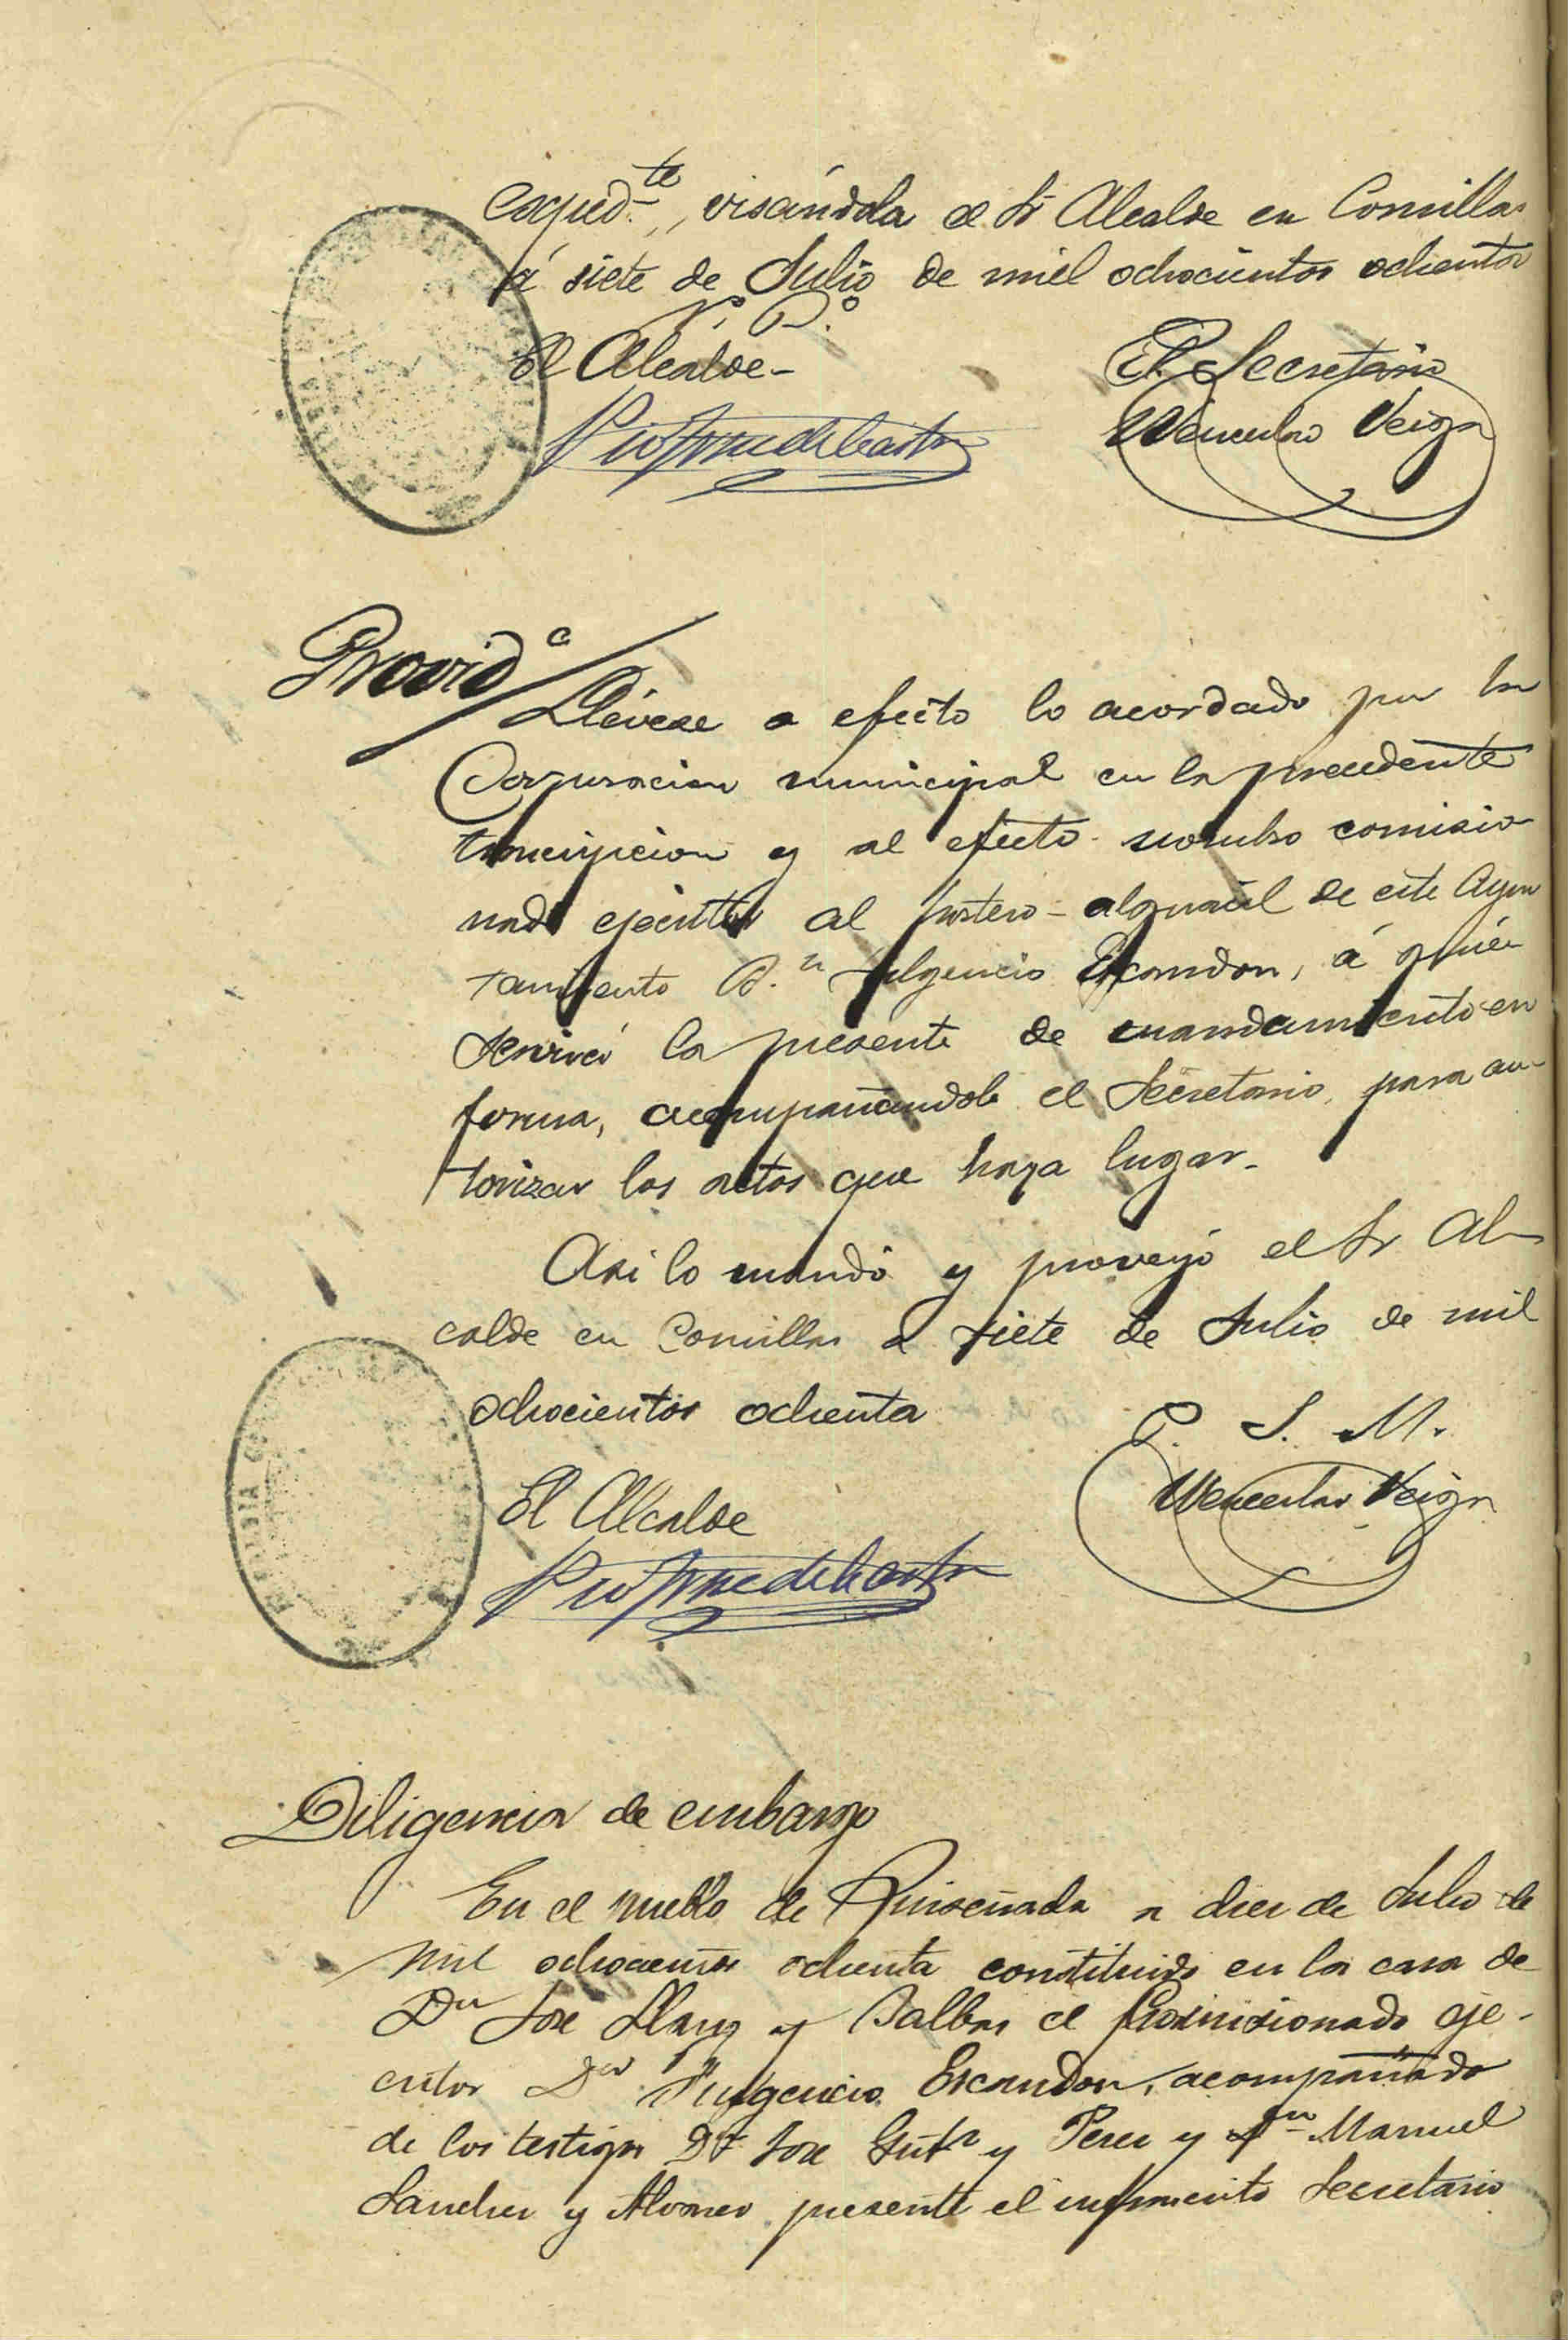 exped.te, visándola el Sr Alcalde en Comillas
á siete de Julio de mil ochocientos ochenta
V.º B.º
El Alcalde
El Secretario
Wenceslao Veiga
Provid.a
Llévese a efecto lo acordado por la
Corporacion municipal en la precedente
trancripcion y al efecto nombro comisio
nado ejecutor al portero-alguacil de este Ayun
tamiento D.n Fulgencio Escandon, á quién
servirá la presente de mandamiento en
forma, acompañandole el Secretario, para au-
torizar los actos que haya lugar.
Asi lo mandó y proveyó el Sr Al-
calde en Comillas a siete de Julio de mil
ochocientos ochenta
P. S. M.
El Alcalde
Wenceslao Veiga
Diligencia de embargo
En el pueblo de Ruiseñada a diez de Julio de
mil ochocientos ochenta constituido en la casa de
Dn Jose Llano y Balbas el Comisionado eje-
cutor Dn Fulgencio Escandon, acompañado
de los testigos Dn Jose Gutz y Perez y Dn Manuel
Sanchez y Alvarez presente el infrascrito Secretario